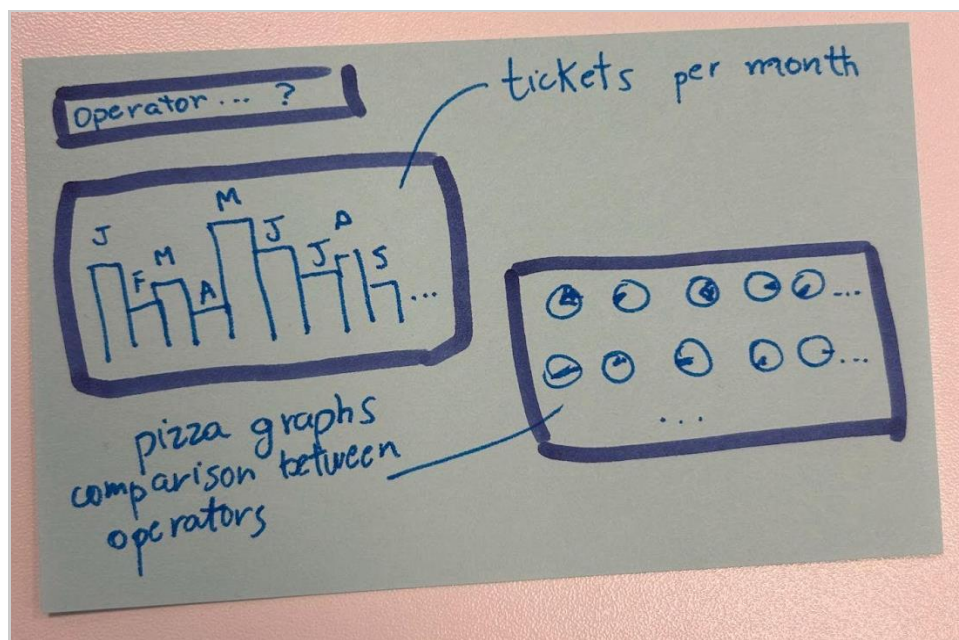 Operator... ?
tickets per month
J F M A M J J A S ...
...
...
...
pizza graphs
comparison between
operators